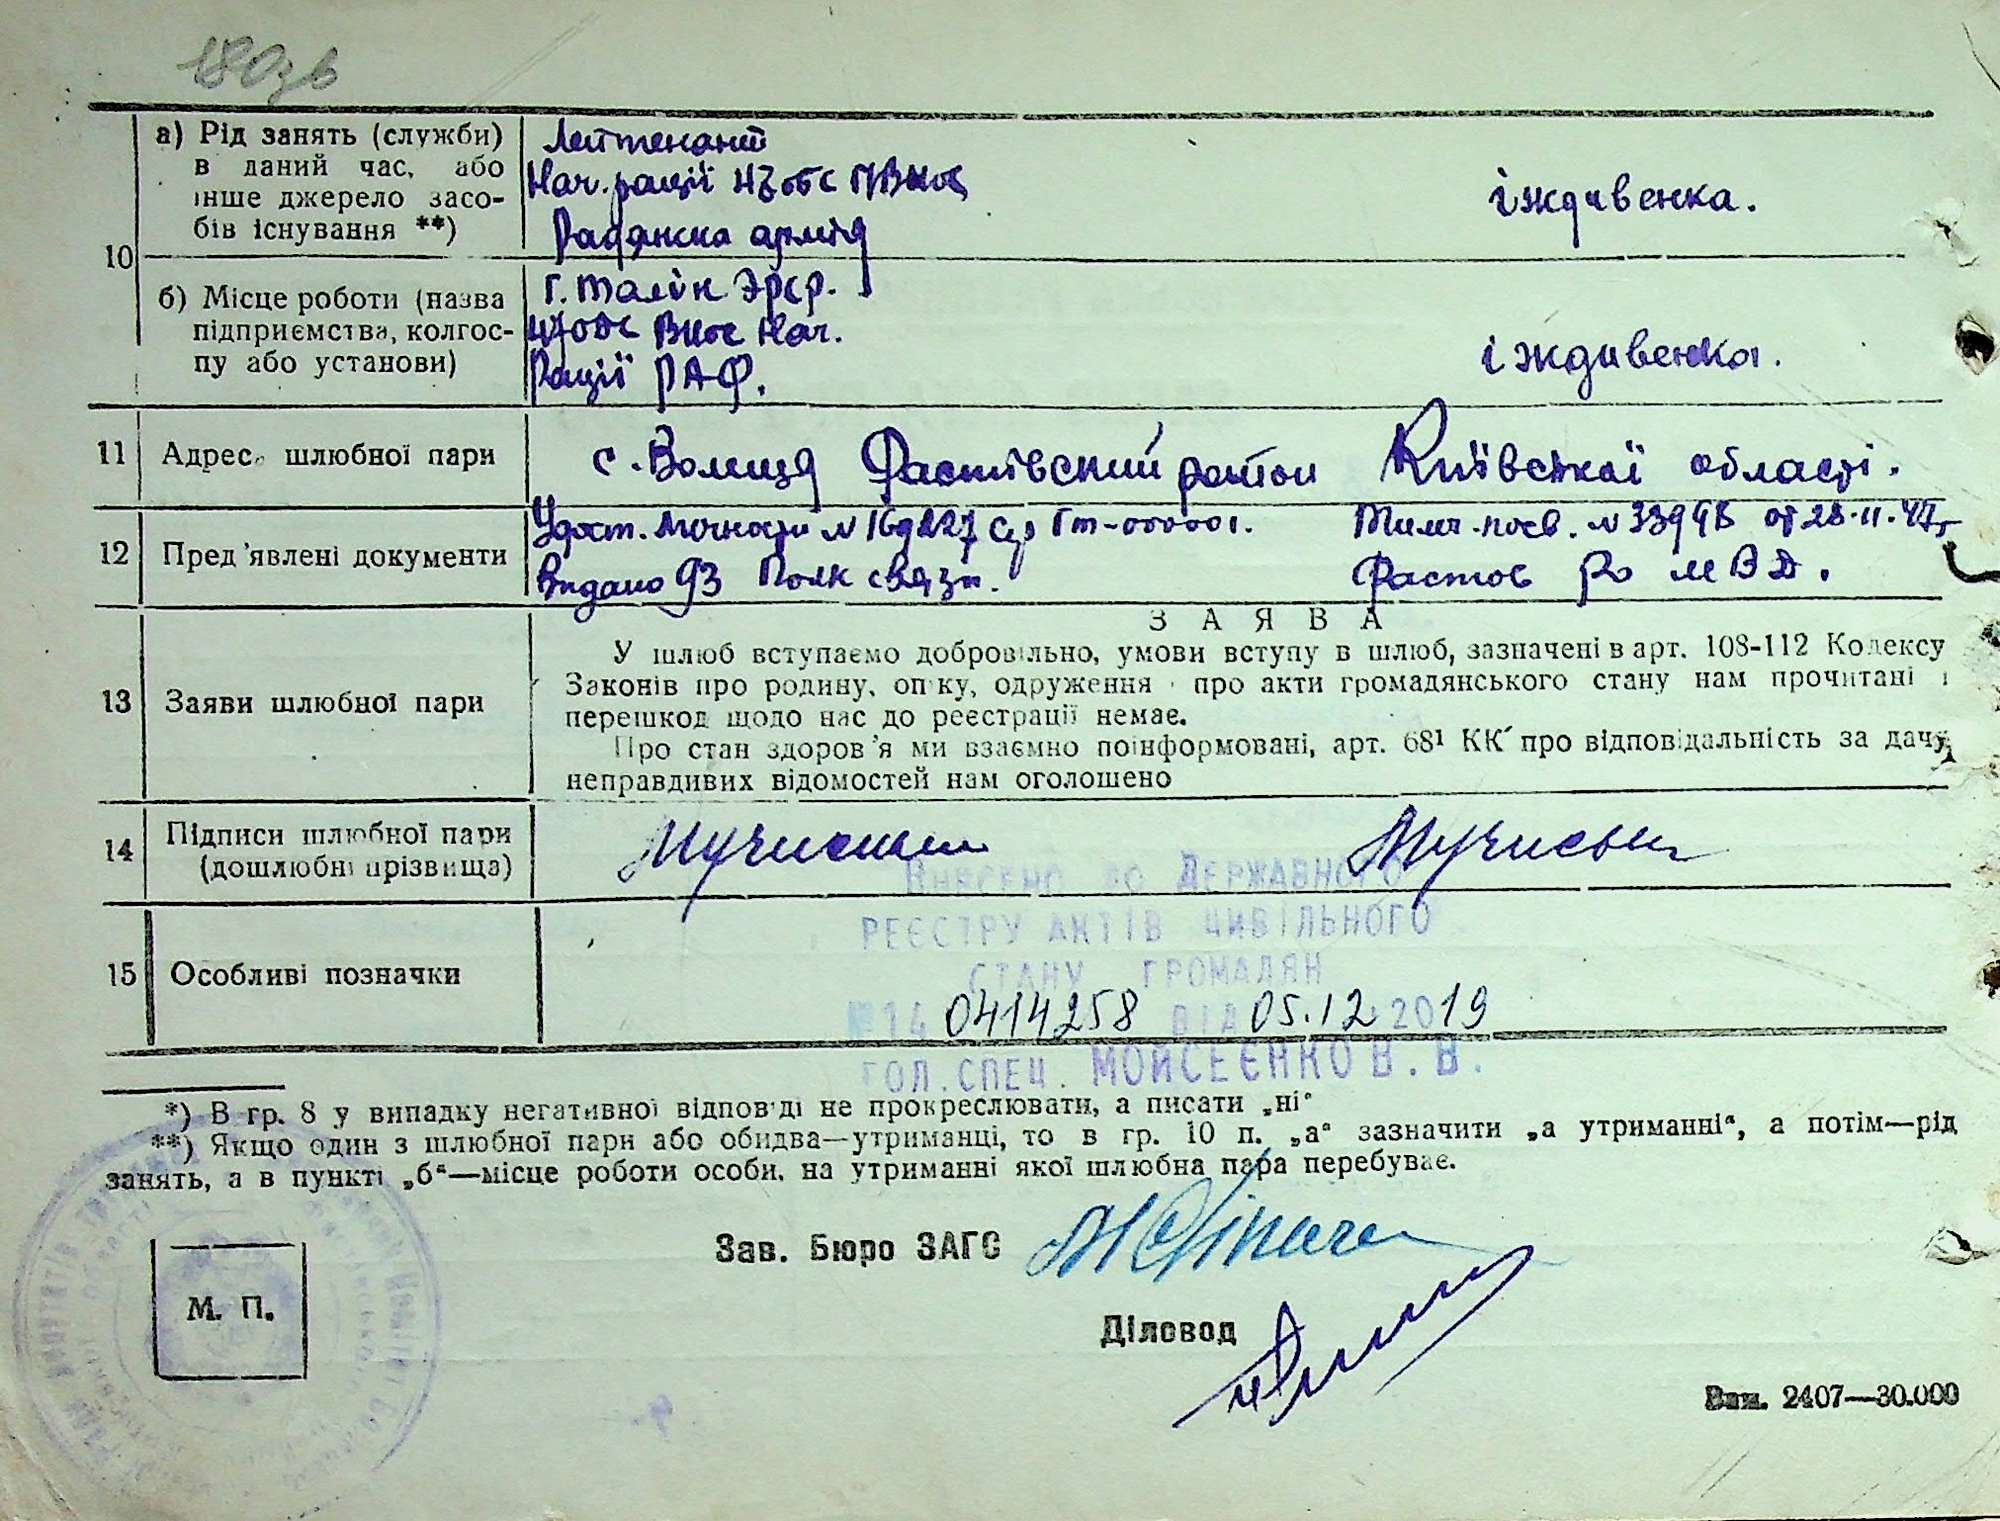 180зв
а) Рід занять (служби)
в даний час, або
інше джерело засо-
бів існування **)
Лейтенант
Нач. рації
Радянска армія
іждивенка.
10
б) Місце роботи (назва
підприємства, колгос-
пу або установи)
г. Талін Эрср.
ВНОС Нач.
Рації РАФ.
іждивенка.
11 Адреса шлюбної пари
с. Волиця Фастівский район Київскої області.
12 Пред'явлені документи
Удост. личности №
Видано 93 Полк связи.
Тимч. посв. № от 28.11.47 г.
Фастов Ро МВД.
13 Заяви шлюбної пари
ЗАЯВА
У шлюб вступаємо добровільно, умови вступу в шлюб, зазначені в арт. 108-112 Кодексу
Законів про родину, опіку, одруження і про акти громадянського стану нам прочитані і
перешкод щодо нас до реєстрації немає.
Про стан здоров'я ми взаємно поінформовані, арт. 68¹ КК про відповідальність за дачу
неправдивих відомостей нам оголошено
14 Підписи шлюбної пари
(дошлюбні прізвища)
15 Особливі позначки
Внесено до Державного
реєстру актів цивільного
стану громадян
№ 14 0414258 від 05.12 2019
Гол. спец. Мойсеєнко В. В.
*) В гр. 8 у випадку негативної відповіді не прокреслювати, а писати „ні“
**) Якщо один з шлюбної пари або обидва—утриманці, то в гр. 10 п. „а“ зазначити „а утриманні“, а потім—рід
занять, а в пункті „б“—місце роботи особи, на утриманні якої шлюбна пара перебуває.
Зав. Бюро ЗАГС
М. П.
Діловод
Зам. 2407—30.000